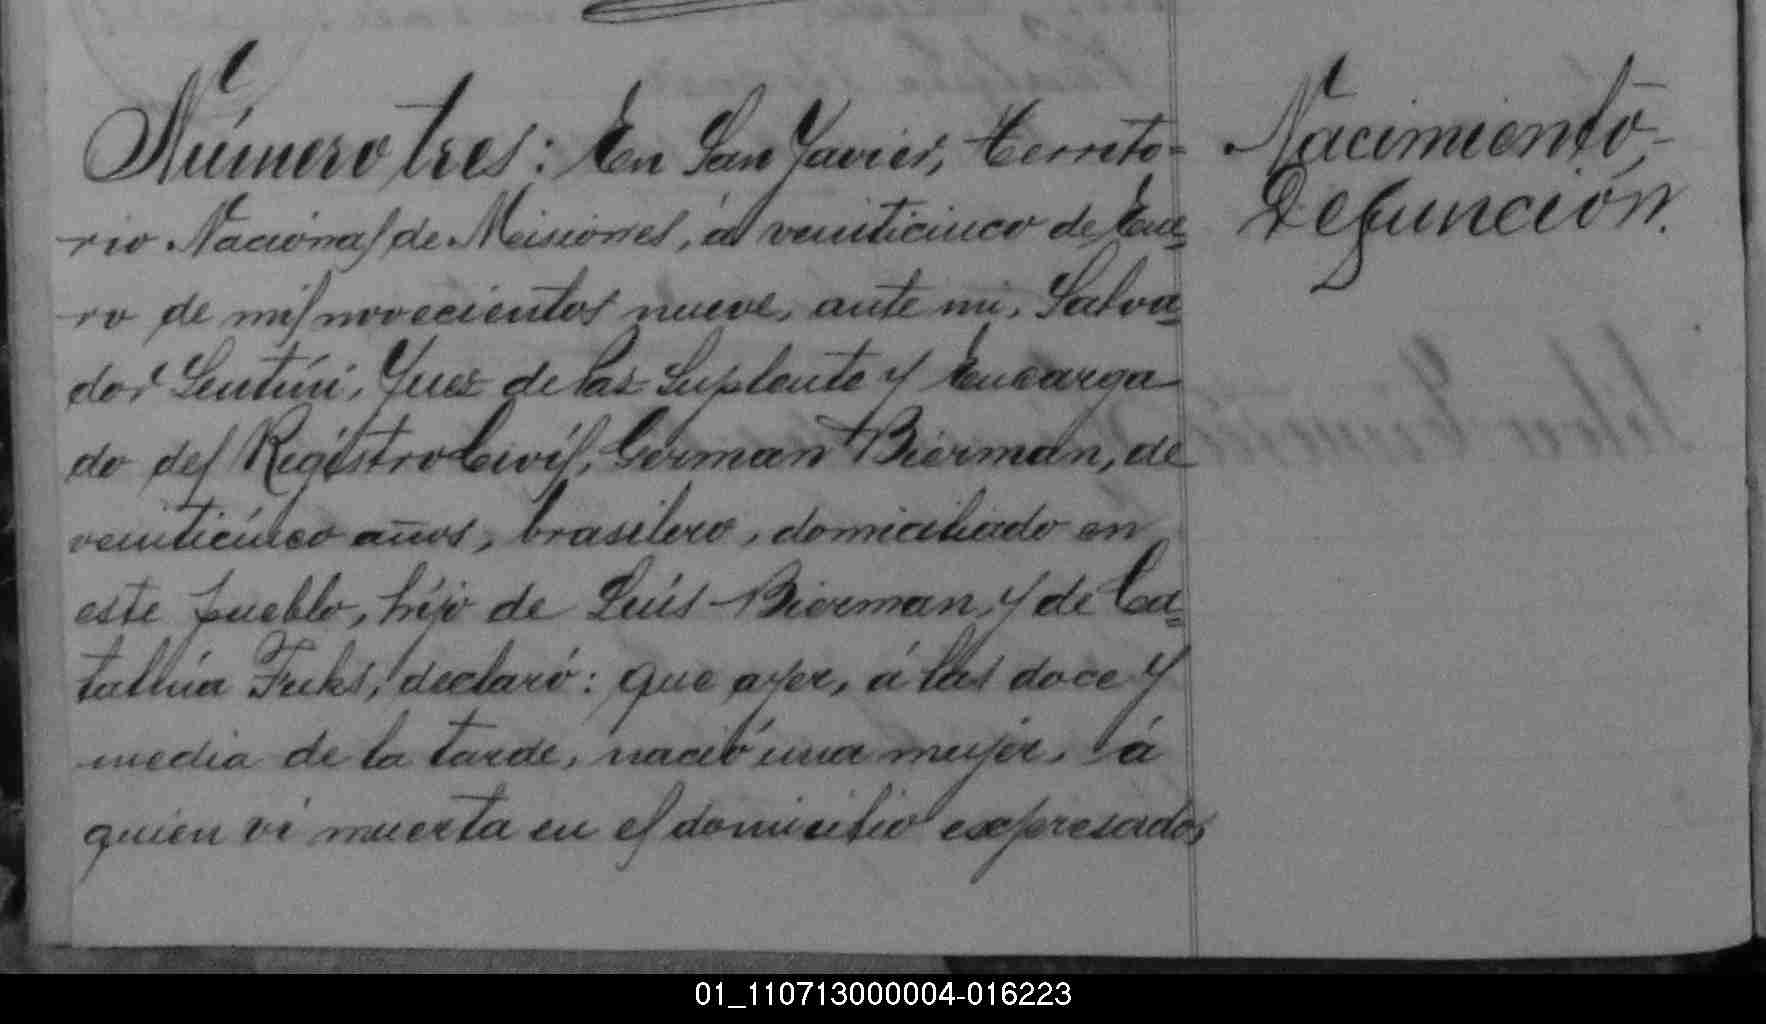 Número tres: En San Javier, Territo=
rio Nacional de Misiones, á veinticinco de Ene=
ro de mil novecientos nueve, ante mi, Salva=
dor Lentini, Juez de Paz Suplente y Encarga
do del Registro Civil, German Bierman, de
veinticinco años, brasilero, domiciliado en
este pueblo, hijo de Luís Bierman, y de Ca=
talina Fuks, declaró: que ayer, á las doce y
media de la tarde, nació una mujer, á
quien vi muerta en el domicilio expresado,
Nacimiento,-
Defunción.
01_110713000004-016223